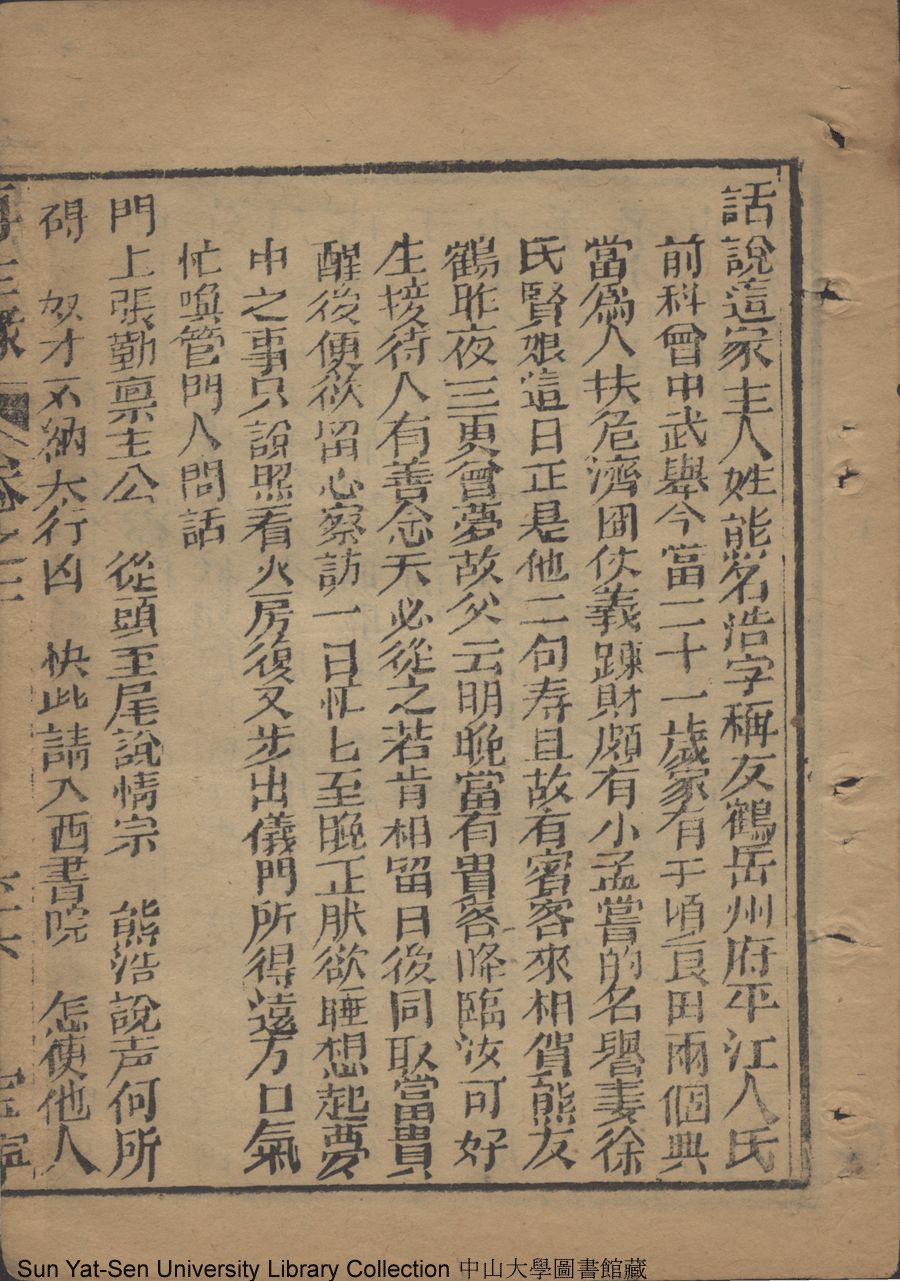 話說這家主人姓能名浩字稱友鶴岳州府平江人氏
前科曾中武舉今當二十一歲家有千頃良田兩個典
當為人扶危濟困仗義踈財頗有小孟嘗的名譽妻徐
氏賢娘這日正是他二旬寿旦故有賓客來相賀熊友
鶴昨夜三更曾夢故父云明晚當有貴客降臨汝可好
生接待人有善念天必從之若肯相留日後同取富貴
醒後便欲留心察訪一日忙匕至晚正肰欲睡想起夢
中之事只說照看火房復又步出儀門所得遠方口氣
忙喚管門人問話
門上張勤禀主公 從頭至尾說情宗 熊浩說声何所
碍 奴才不納太行凶 快此請入西書院 怎使他人
再生緣 卷之二
Sun Yat-Sen University Library Collection 中山大學圖書館藏